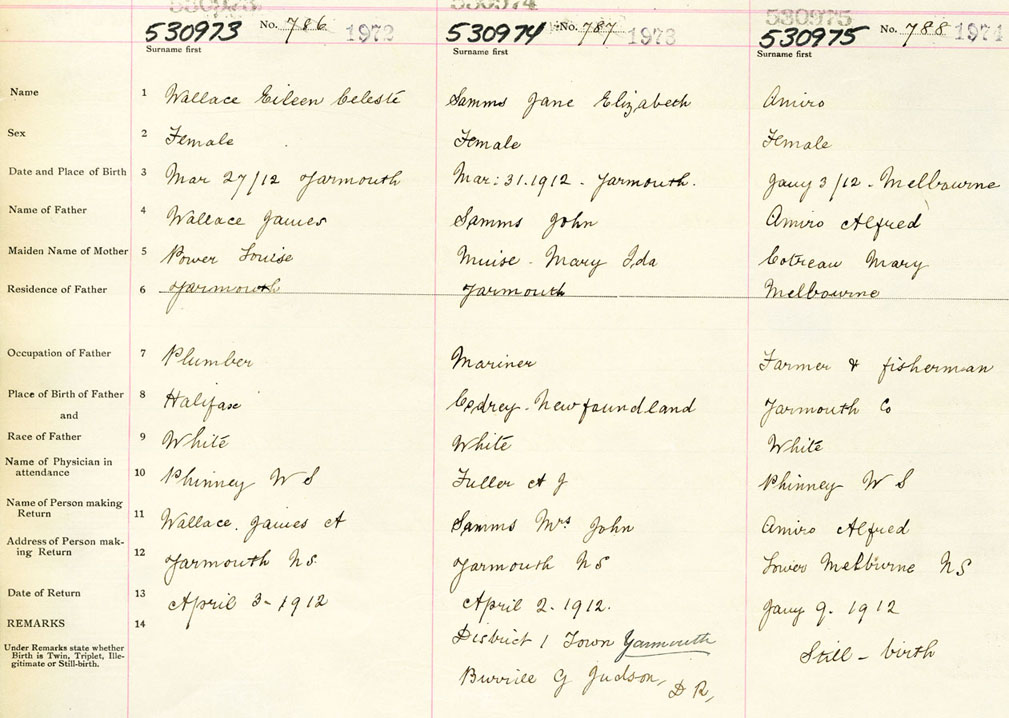 530973 530974 530975
530973 No. 786 1972 530974 No. 787 1973 530975 No. 788 1974
Surname first Surname first Surname first
Name 1 Wallace Eileen Celeste Samms Jane Elizabeth Amiro
Sex 2 Female Female Female
Date and Place of Birth 3 Mar 27/12 Yarmouth Mar: 31. 1912 - Yarmouth. Jany 3/12 - Melbourne
Name of Father 4 Wallace James Samms John Amiro Alfred
Maiden Name of Mother 5 Power Louise Muise - Mary Ida Cotreau Mary
Residence of Father 6 Yarmouth Yarmouth Melbourne
Occupation of Father 7 Plumber Mariner Farmer & fisherman
Place of Birth of Father 8 Halifax Codrey - Newfoundland Yarmouth Co
and
Race of Father 9 White White White
Name of Physician in
attendance 10 Phinney W S Fuller A J Phinney W S
Name of Person making
Return 11 Wallace. James A Samms Mrs John Amiro Alfred
Address of Person mak-
ing Return 12 Yarmouth N.S. Yarmouth NS Lower Melbourne NS
Date of Return 13 April 3 - 1912 April 2 - 1912. Jany 9. 1912
REMARKS 14 District 1 Town Yarmouth Still - birth
Under Remarks state whether
Birth is Twin, Triplet, Ille-
gitimate or Still-birth.
Burrill G Judson, D R,